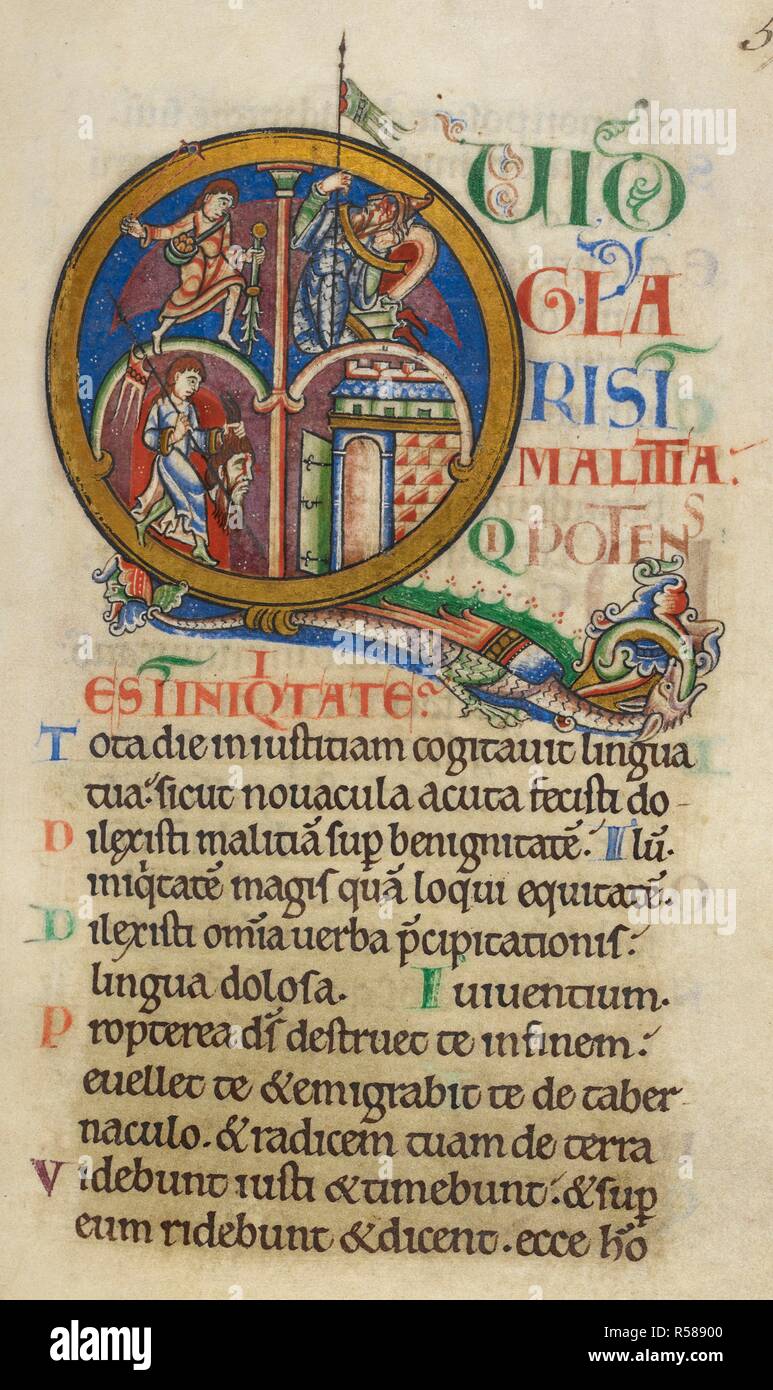 QUID
GLA
RISTI
MALITIA
QI POTENS
I
EST INIQTATE
Tota die iniustitiam cogitavit lingua
tua. sicut nouacula acuta fecisti do-
Dilexisti malitiā sup benignitatē. Ilū.
iniqitatē magis quā loqui equitatē.
Dilexisti omīa uerba p̄cipitationis.
lingua dolosa. I uiuentium.
Propterea ds̄ destruet te infinem.
euellet te & emigrabit te de taber-
naculo. & radicem tuam de terra
Videbunt iusti & timebunt. & sup
eum ridebunt & dicent. ecce hō
a alamy stock photo
alamy
Image ID: R58900
www.alamy.com